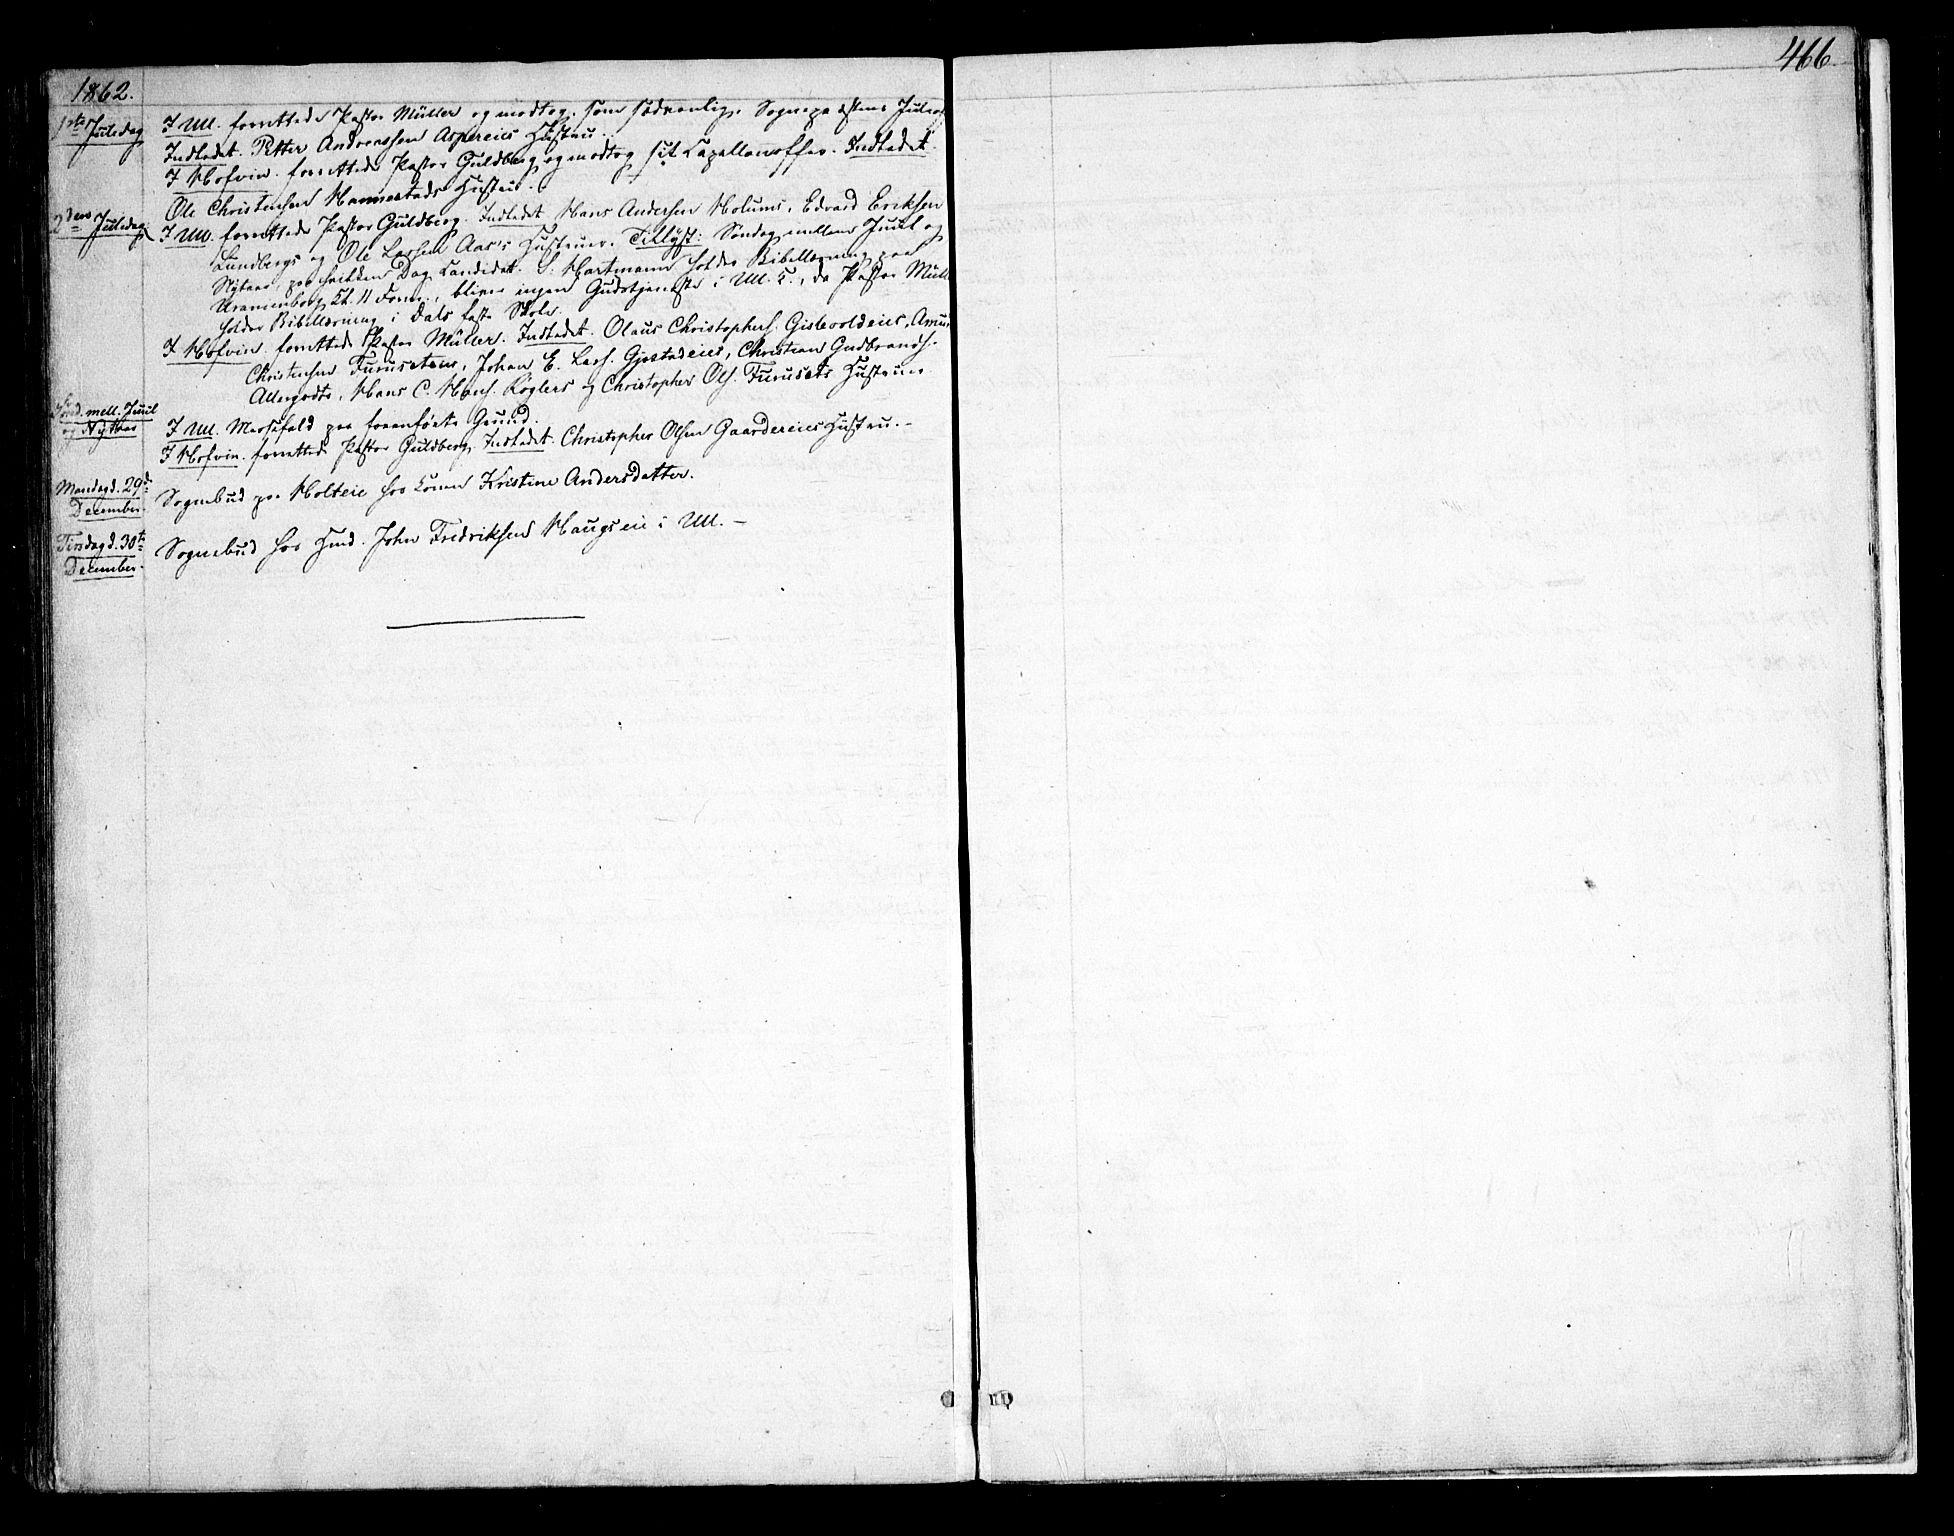 466.
1862.
1ste Juledag
I Ull. forrettede Pastor Müller og modtog, som sædvanlig, Sognepræstens Juleof
Indledet. Petter Andreassen Aspereies Hustru.
I Hofvin. forrettede Pastor Guldberg og modtog sit Capellanoffer. Indledet.
Ole Christensen Hannestads Hustru.
2den Juledag
I Ull. forrettede Pastor Guldberg. Indledet, Hans Andersen Holums, Edvard Eriksen
Lundbergs og Ole Larsen Aas's Hustruer. Tillyst: Søndag mellem Juul og
Nytaar, paa hvilken Dag Candidat. Hartmann holder Bibellæsning paa
Kl. 11 Form., bliver ingen Gudstjeneste i Ull. K., da Pastor Müll
holder Bibellæsning i Dals faste Skole.
I Hofvin. forrettede Pastor Müller. Indledet. Olaus Christophers. Gislevoldeies, Amun
Christensen Furusetens, Johan E. Lars. Gjestadeies, Christian Gudbrands.
Allergodts, Hans C. Hans. Røglers og Christopher Ols. Furusets Hustruer.
Sønd. mell. Juul
og Nytaar
I Ull. Messefald paa forannførte Grund.
I Hofvin. forrettede Pastor Guldberg, Indledet. Christopher Olsen Gaardereies Hustru. -
Mandag d. 29de
December.
Sognebud paa Holteie hos Konen Kristine Andersdatter.
Tirsdag d. 30te
December.
Sognebud hos Hmd. John Fredriksen Haugseie i Ull. -